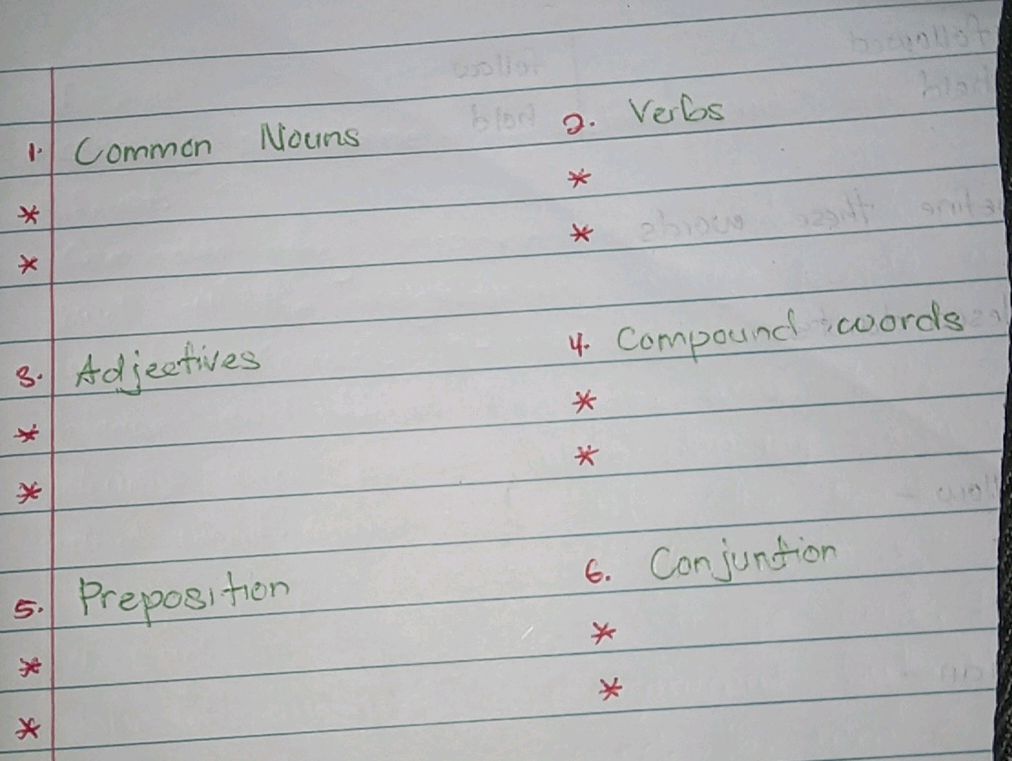 1. Common Nouns
*
*
2. Verbs
*
*
3. Adjectives
*
*
4. Compound words
*
*
5. Preposition
*
*
6. Conjuntion
*
*